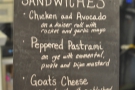 SANDWICHES
• Chicken and Avocado
on a kaiser roll with
rocket and garlic mayo
Peppered Pastrami
on rye with emmental,
pickle and Dijon mustard
• Goats Cheese